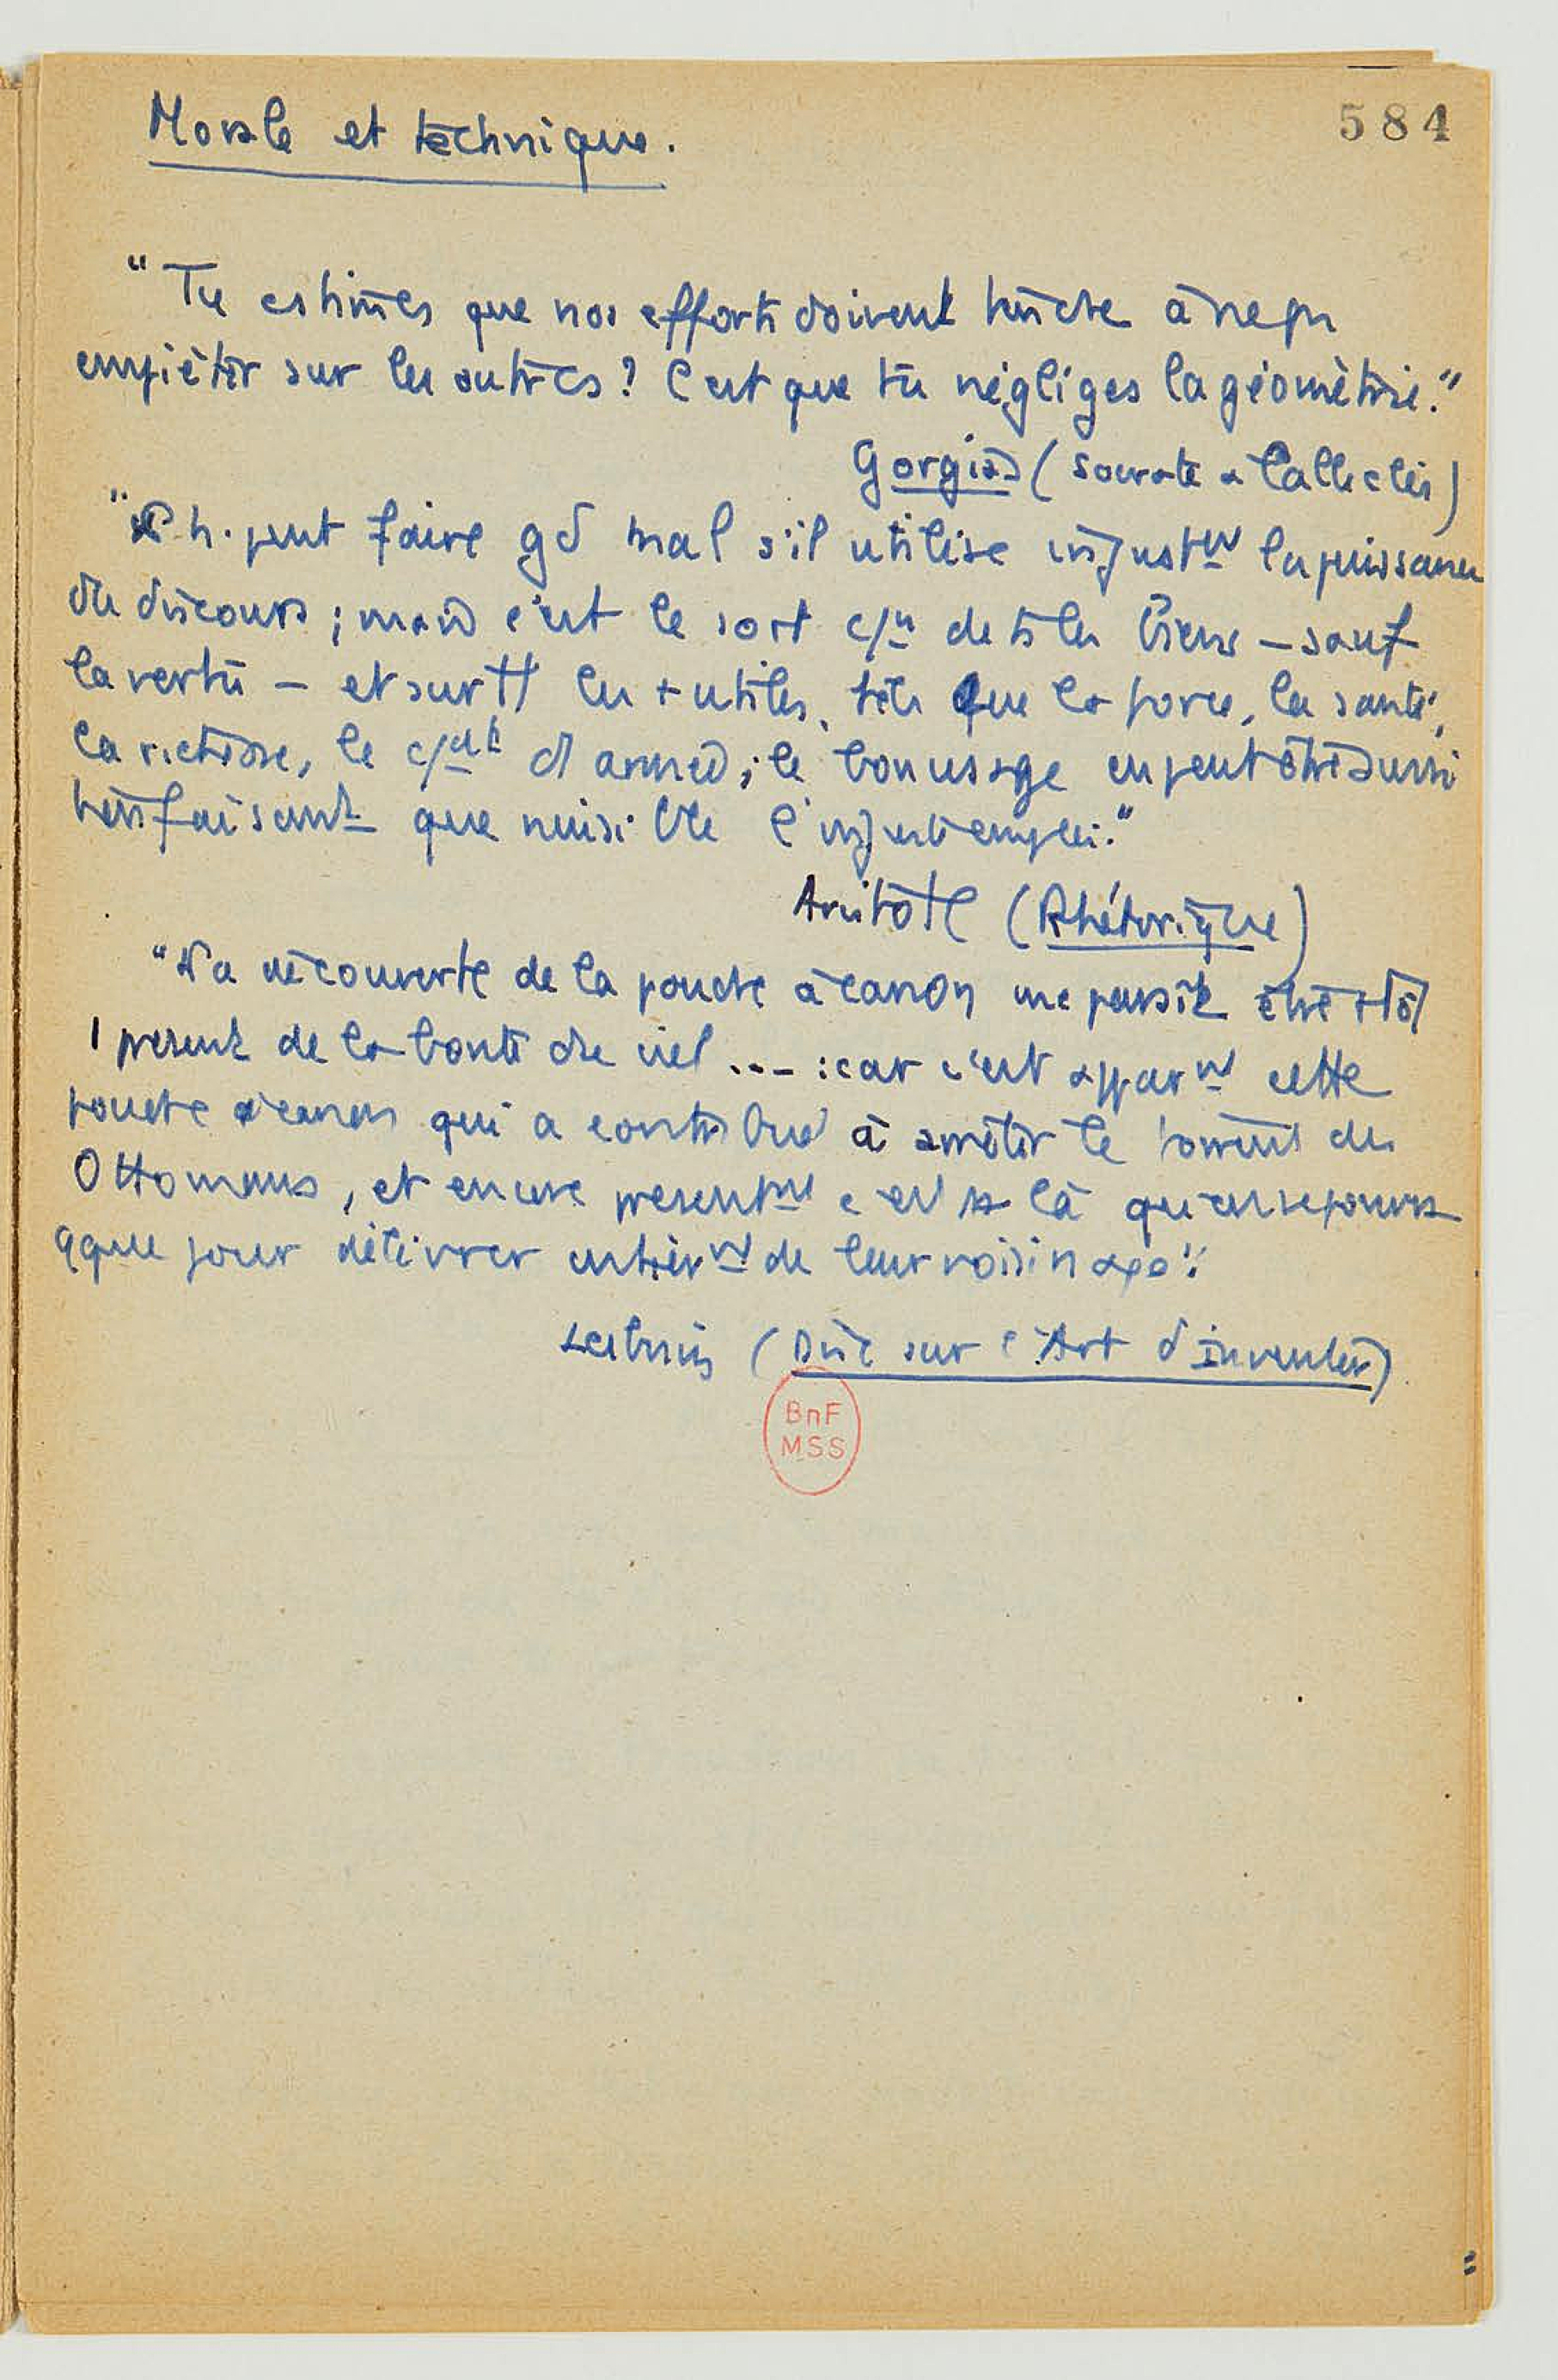 584
Morale et technique.
"Tu estimes que nos efforts doivent tendre à ne pas
empiéter sur les autres? C'est que tu négliges la géométrie."
Gorgias (Socrate a Calliclès)
"L'h. peut faire gd mal s'il utilise injustmt la puissance
du discours; mais c'est le sort de ts les biens – sauf
la vertu – et surtt les + utiles, tels que la force, la santé,
la richesse, le d armée; le bon usage en peut être aussi
bienfaisant que nuisible l'injuste emploi."
Aristote (Rhétorique)
"La découverte de la poudre à canon me paraît être
1 présent de la bonté du ciel ... : car c'est apparmt cette
poudre à canon qui a contribué à arrêter le torrent des
Ottomans, et encore présentmt c'est là qu'on se pourra
qque jour délivrer entièrmt de leur voisinage".
Leibniz (Disc sur l'Art d'inventer)
BnF
MSS